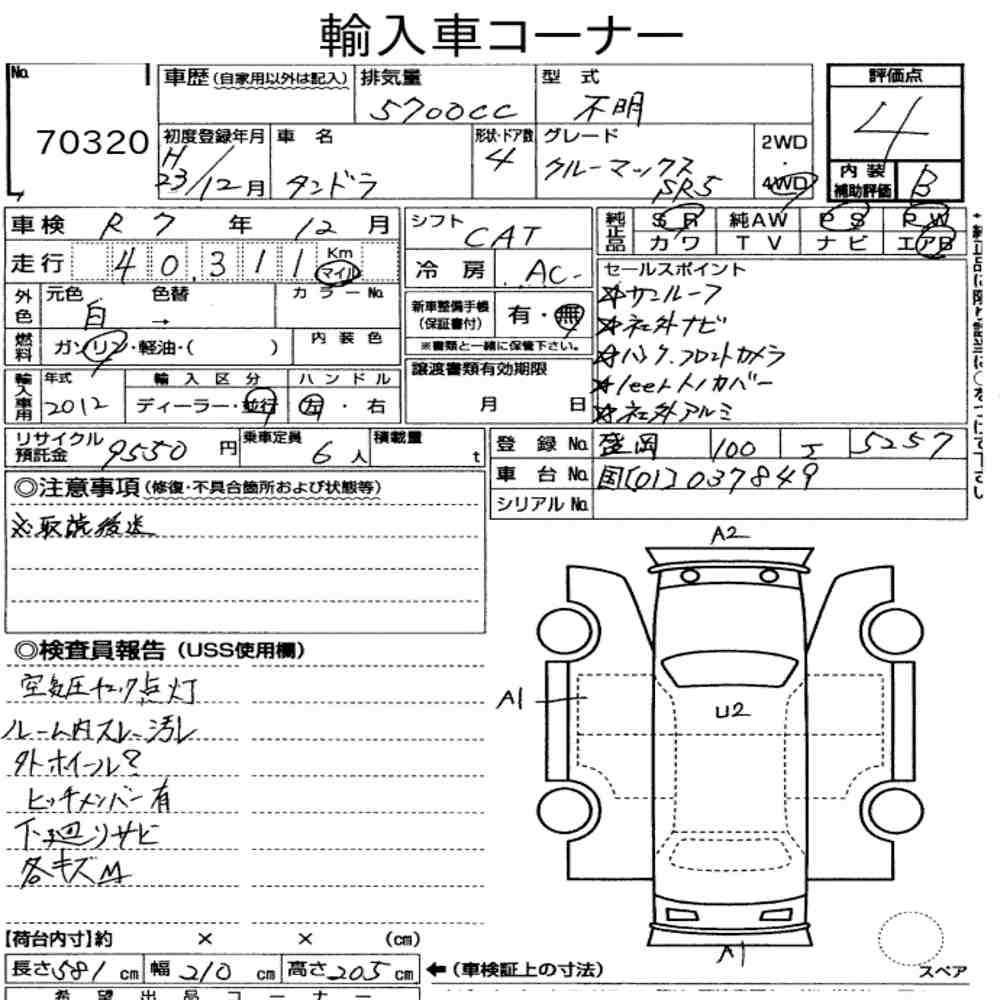 輸入車コーナー
No. 70320
車歴 (自家用以外は記入)
排気量 5700cc
型式 不明
評価点 4
初度登録年月 H23/12月
車名 タンドラ
形状・ドア数 4
グレード クルーマックス SR5
2WD・4WD
内装補助評価 B
車検 R7年12月
走行 40,311 Km マイル
外色 元色 白 色替 → カラーNo.
燃料 ガソリン・軽油・( ) 内装色
輸入車用 年式 2012 輸入区分 ディーラー・並行 ハンドル 左・右
シフト CAT
冷房 AC
新車整備手帳(保証書付) 有・無
※書類と一緒に保管下さい。
譲渡書類有効期限 月 日
純正品 SR 純AW PS PW
カワ TV ナビ エアB
セールスポイント
☆サンルーフ
☆社外ナビ
☆バック.フロントカメラ
☆トノカバー
☆社外アルミ
リサイクル預託金 9550円
乗車定員 6人
積載量 t
登録No. 盛岡 100 5257
車台No. 国[01]037849
シリアルNo.
◎注意事項(修復・不具合箇所および状態等)
※取説後送
◎検査員報告(USS使用欄)
空気圧チェック点灯
ルーム内スレー汚レ
外ホイール?
ヒッチメンバー有
下廻リサビ
各キズM
A2
A1
U2
A1
スペア
【荷台内寸】約 × × (cm)
長さ581cm 幅210cm 高さ205cm
←(車検証上の寸法)
希望出品コーナー